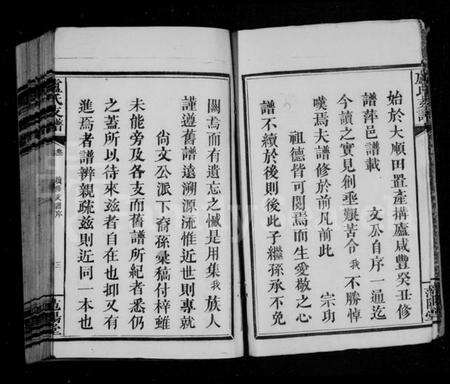 始於大順田置產搆廬咸豐癸丑修
譜萍邑譜載 文公自序一通迄
今讀之實見創垂艱苦令我不勝悼
嘆焉夫譜修於前凡前此 宗功
祖德皆可闕焉而生愛敬之心
譜不續於後則後此子繼孫承不免
闕焉而有遺忘之憾是用集我族人
謹遵舊譜遠溯源流惟近世則專就
尚文公派下裔孫彙稿付梓雖
未能旁及各支而舊譜所紀者悉仍
之蓋所以待來茲者自在也抑又有
進焉者譜辨親疏茲則近同一本也
盧氏支譜
三